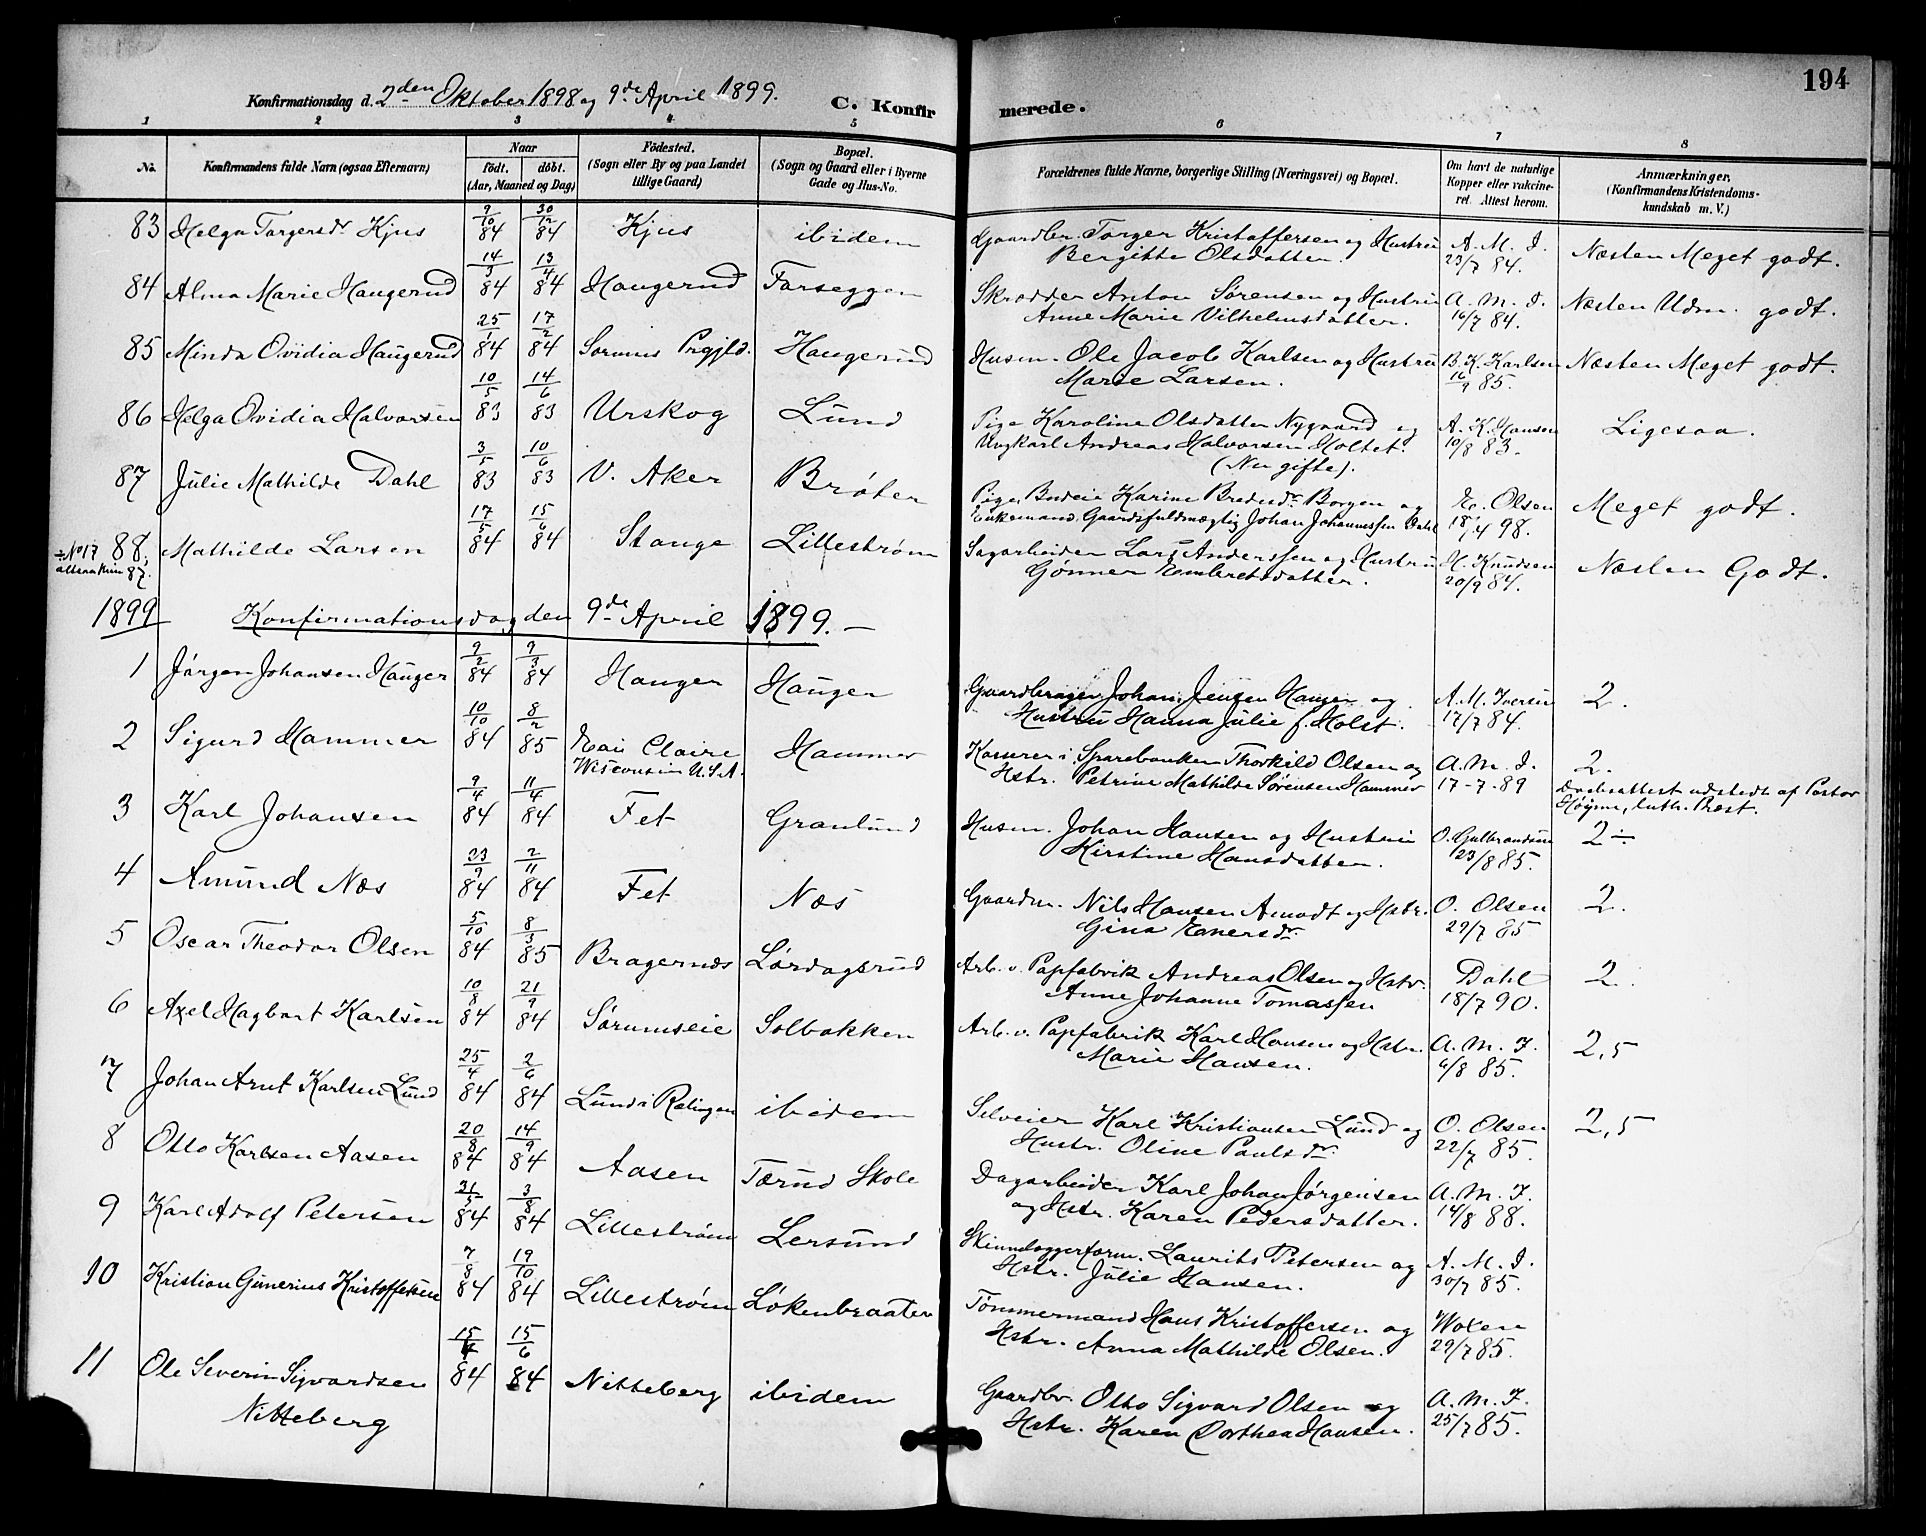 194
Konfirmationsdag d. 2den Oktober 1898 og 9de April 1899. C. Konfirmerede.
1 2 3 4 5 6 7 8
No. Konfirmandens fulde Navn (ogsaa Efternavn) Naar födt. döbt. (Aar, Maaned og Dag) Födested. (Sogn eller By og paa Landet tillige Gaard) Bopæl. (Sogn og Gaard eller i Byerne Gade og Hus-No. Forældrenes fulde Navne, borgerlige Stilling (Næringsvei) og Bopæl. Om havt de naturlige Kopper eller vakcineret. Attest herom. Anmærkninger. (Konfirmandens Kristendomskundskab m. V.)
83 Helga Torgersdr Kjus 9/10 84 30/12 84 Kjus ibidem Gaardbr. Torger Kristoffersen og Hustru Bergitte Olsdatter. A. M. I. 23/7 84. Næsten Meget godt.
84 Alma Marie Haugerud 14/3 84 13/4 84 Haugerud Farseggen Skrædder Anton Sørensen og Hustru Anne Marie Vilhelmsdatter. A. M. I. 16/7 84. Næsten Udm. godt.
85 Minda Ovidia Haugerud 25/1 84 17/2 84 Sørums Prgjld. Haugerud Husm. Ole Jacob Karlsen og Hustru Marie Larsen. B. K. Karlsen 16/9 85. Næsten Meget godt.
86 Helga Ovidia Halvorsen 10/5 83 14/6 83 Urskog Lund Pige Karoline Olsdatter Nygaard og Ungkarl Andreas Halvorsen Holtet. (Nu gifte). A. K. Hansen 10/8 83. Ligesaa.
87 Julie Mathilde Dahl 3/5 83 10/6 83 V. Aker Brøter Pige Budeie Karine Bredesdr Borgen og Enkemand Gaardsfuldmægtig Johan Johannessen Dahl E. Olsen 18/4 98. Meget godt.
÷ No 17 altsaa kun 87. 88. Mathilde Larsen 17/5 84 15/6 84 Stange Lillestrøm Sagarbeider Lars Anderssen og Hustru Gønner Embretsdatter. H. Knudsen 20/9 84. Næsten Godt.
1899 Konfirmationsdag den 9de April 1899. —
1 Jørgen Johansen Hauger 9/2 84 9/3 84 Hauger Hauger Gaardbruger Johan Jensen Hauger og Hustru Hanna Julie f. Holst. A. M. Iversen 17/7 84. 2.
2 Sigurd Hammer 10/10 84 8/2 85 Eau Claire Wisconsin U.S.A. Hammer Kasserer i Sparebanken Thorkild Olsen og Hstr. Petrine Mathilde Sørensen Hammer A. M. I. 17-7-89 2. Daabsattest udstedt af Pastor Høyme, luth. Præst.
3 Karl Johansen 9/4 84 11/4 84 Fet Granlund Husm. Johan Hansen og Hustru Kirstine Hansdatter. O. Gulbrandsen 23/8 85. 2÷
4 Amund Næs 23/9 84 2/11 84 Fet Næs Gaardm. Nils Hansen Amodt og Hstr. Gina Enersdr. O. Olsen 29/7 85 2.
5 Oscar Theodor Olsen 5/10 84 8/3 85 Bragernæs Lørdagsrud Arb. v. Papfabrik Andreas Olsen og Hstr. Anne Johanne Tomassen Dahl 18/7 90. 2.
6 Axel Hagbart Karlsen 10/8 84 21/9 84 Sørumseie Solbakken Arb. v. Papfabrik Karl Hansen og Hstr. Marie Hansen. A. M. I. 6/8 85. 2,5
7 Johan Arnt Karlsen Lund 25/4 84 2/6 84 Lund i Rælingen ibidem Selveier Karl Kristiansen Lund og Hustr. Oline Paulsdr. O. Olsen 22/7 85. 2,5
8 Otto Karlsen Aasen 20/8 84 14/9 84 Aasen Tærud Skole Dagarbeider Karl Johan Jørgensen og Hstr. Karen Pedersdatter. A. M. I. 14/8 88.
9 Karl Adolf Petersen 31/5 84 3/8 84 Lillestrøm Lersund Skinnlæggerform. Laurits Petersen og Hstr. Julie Hansen. A. M. I. 30/7 85.
10 Kristian Gunerius Kristoffersen 7/8 84 19/10 84 Lillestrøm Løkenbraaten Tømmermand Hans Kristoffersen og Hstr. Anna Mathilde Olsen. Woxen 29/7 85.
11 Ole Severin Sigvardsen Nitteberg 15/4 84 15/6 84 Nitteberg ibidem Gaardbr. Otto Sigvard Olsen og Hstr. Karen Dorthea Hansen. A. M. I. 25/7 85.